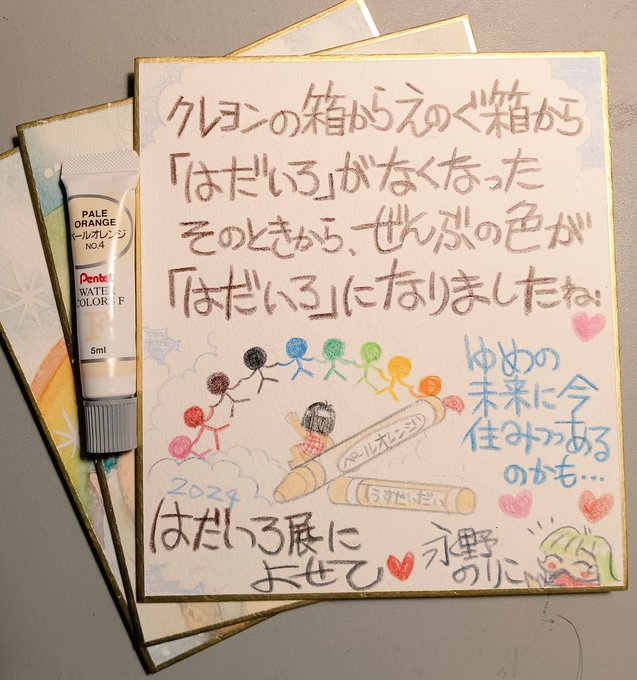 クレヨンの箱からえのぐ箱から
「はだいろ」がなくなった
そのときから、ぜんぶの色が
「はだいろ」になりましたね!
ゆめの
未来に今
住みつつある
のかも…
PALE
ORANGE
ペールオレンジ
NO.4
Pentel
WATER
COLORS F
5ml
ペールオレンジ
うすだいだい
2024
はだいろ展に
よせて
永野
のりこ